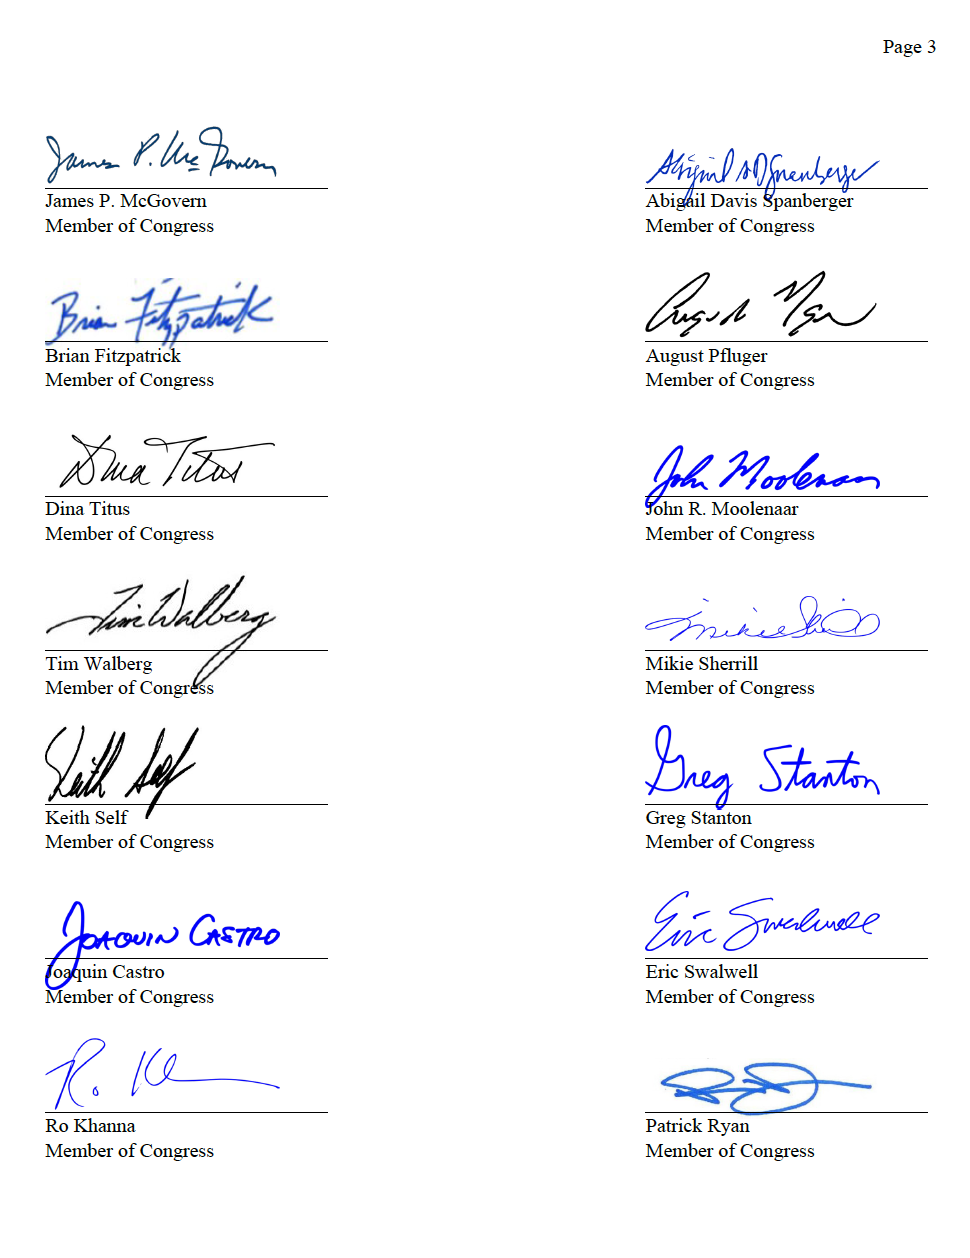 Page 3
James P. McGovern
James P. McGovern
Member of Congress
Abigail D Spanberger
Abigail Davis Spanberger
Member of Congress
Brian Fitzpatrick
Brian Fitzpatrick
Member of Congress
August Pfluger
Member of Congress
Dina Titus
Dina Titus
Member of Congress
John Moolenaar
John R. Moolenaar
Member of Congress
Tim Walberg
Tim Walberg
Member of Congress
Mikie Sherrill
Mikie Sherrill
Member of Congress
Keith Self
Keith Self
Member of Congress
Greg Stanton
Greg Stanton
Member of Congress
Joaquin Castro
Joaquin Castro
Member of Congress
Eric Swalwell
Eric Swalwell
Member of Congress
R. Kh
Ro Khanna
Member of Congress
Patrick Ryan
Member of Congress